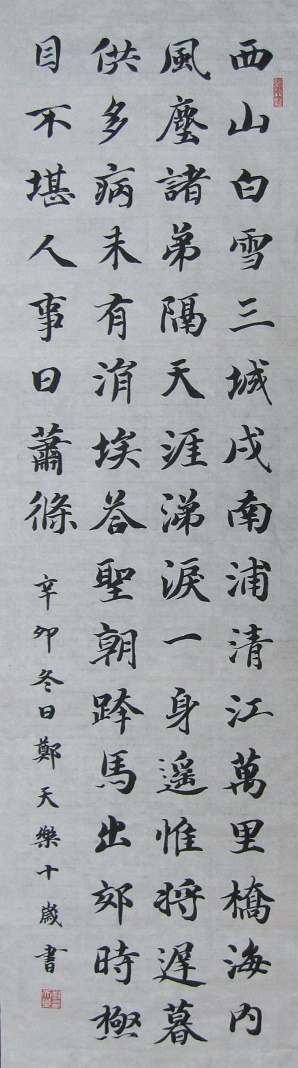 西山白雪三城戍南浦清江萬里橋海内
風塵諸弟隔天涯涕淚一身遥惟將遲暮
供多病未有涓埃答聖朝跨馬出郊時極
目不堪人事日蕭條
辛卯冬日鄭天樂十歲書